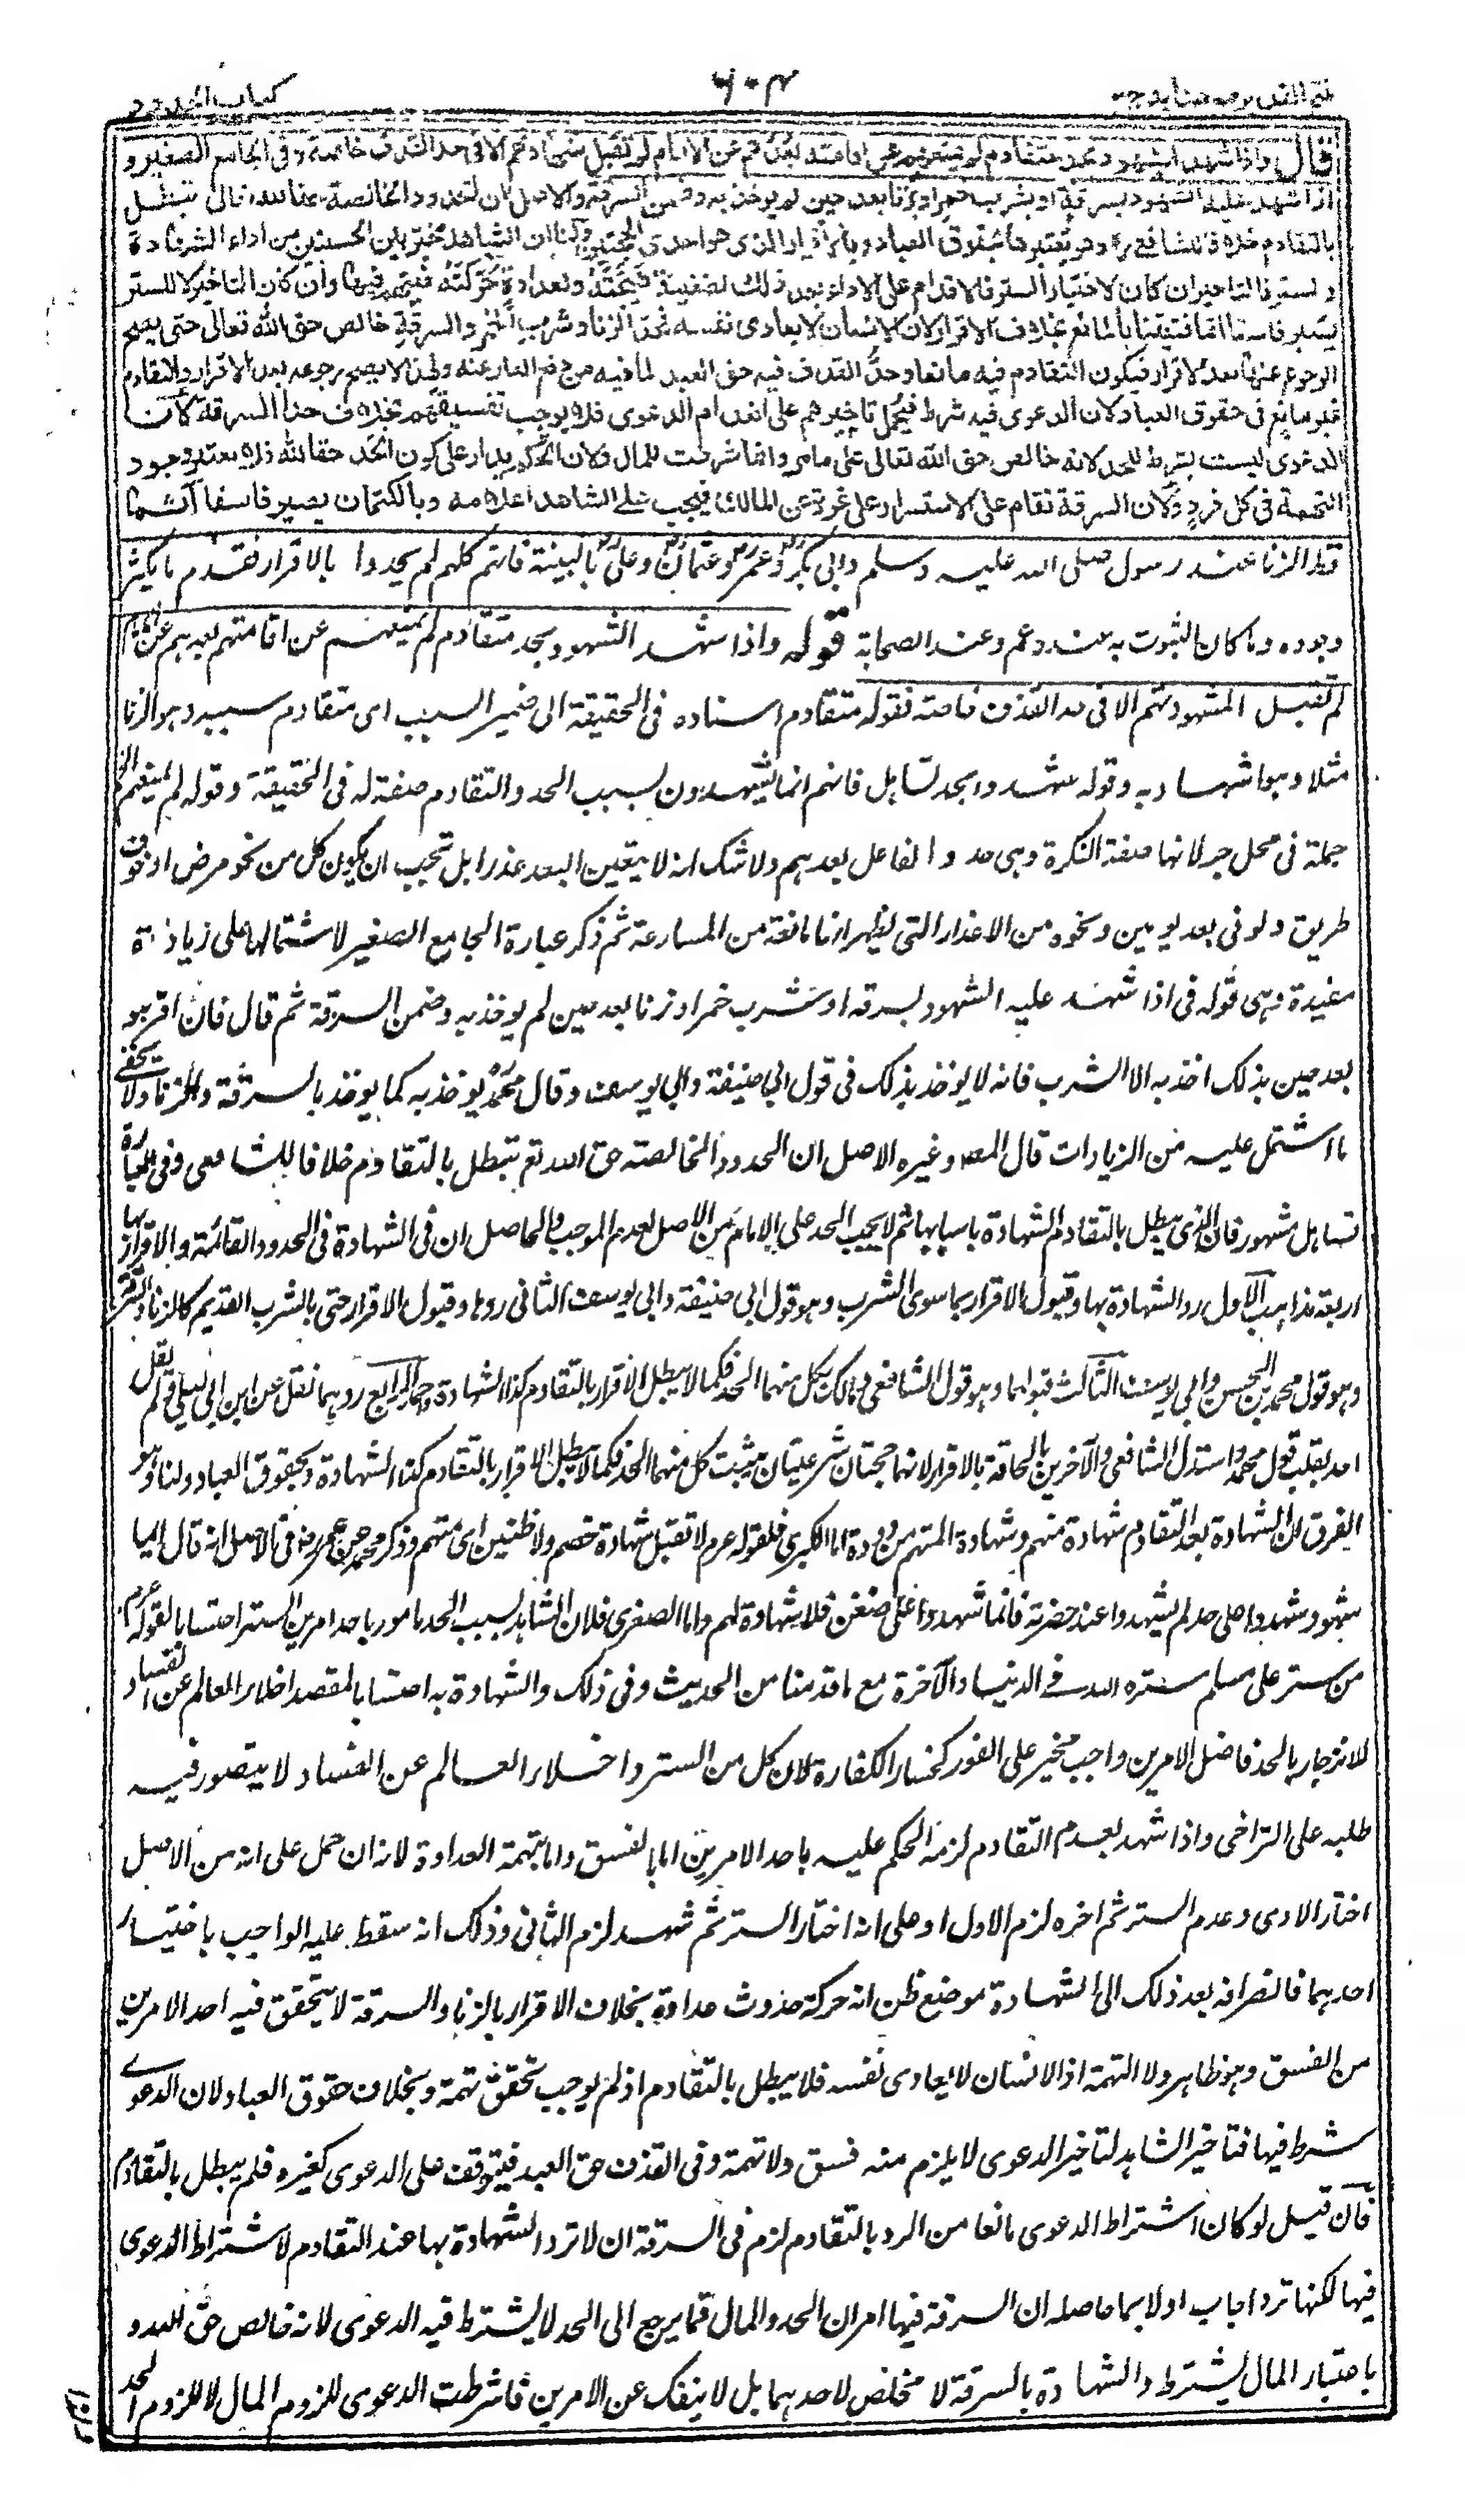 فتح القدير مع هدايه ج ٢
٦٠٣
كتاب الحدود
قال واذا شهد الشهود بحد متقادم لم يمنعهم عن اقامته بعدهم عن الامام لم تقبل شهادتهم الا فى حد القذف خاصة وفى الجامع الصغير و
اذا شهد عليه الشهود بسرقة او بشرب خمر او بزنا بعد حين لم يوخذ به وضمن السرقة والاصل ان الحدود الخالصة حقا لله تعالى تبطل
بالتقادم خلافا للشافعى وهو يعتبرها بحقوق العباد وبالاقرار الذى هو احدى الحجتين ولنا ان الشاهد مخير بين الحسبتين من اداء الشهادة
والستر فالتاخير ان كان لاختيار الستر فالاقدام على الاداء بعد ذلك لضغينة هيجته ولعداوة حركته فيتهم فيها وان كان التاخير لا للستر
يصير فاسقا اثما فتيقنا بالمانع بخلاف الاقرار لان الانسان لا يعادى نفسه فحد الزنا وشرب الخمر والسرقة خالص حق الله تعالى حتى يصح
الرجوع عنها بعد الاقرار فيكون التقادم فيه مانعا وحد القذف فيه حق العبد لما فيه من دفع العار عنه ولهذا لا يصح رجوعه بعد الاقرار والتقادم
غير مانع فى حقوق العباد لان الدعوى فيه شرط فيحمل تاخيرهم على انعدام الدعوى فلا يوجب تفسيقهم بخلاف حد السرقة لان
الدعوى ليست بشرط للحد لانه خالص حق الله تعالى على ما مر وانما شرطت للمال ولان الحكم يدار على كون الحد حقا لله فلا يعتبر وجود
التهمة فى كل فرد ولان السرقة تقام على الاستسرار على غرة عن المالك فيجب على الشاهد اعلامه وبالكتمان يصير فاسقا آثما
قط الزنا عند رسول صلى الله عليه وسلم وابى بكر وعمر وعثمان وعلى بالبينة فانهم كلهم لم يحدوا بالاقرار فقدم ما يكثر
وجوده وما كان الثبوت به عنده عم وعند الصحابة قوله واذا شهد الشهود بحد متقادم لم يمنعهم عن اقامتهم بعدهم عن الامام
لم تقبل الشهودتهم الا فى حد القذف خاصة فقوله متقادم اسناده فى الحقيقة الى ضمير السبب اى متقادم سببه وهو الزنا
مثلا وهو اشهادبه وقوله شهدوا بحد تساهل فانهم انما يشهدون بسبب الحد والتقادم صفة له فى الحقيقة وقوله لم يمنعهم الخ
جملة فى محل جر لانها صفة النكرة وهى حد والفاعل بعدهم ولا شك انه لا يتعين البعد عذرا بل تحجب ان يكون كل من نحو مرض او خوف
طريق ولو فى بعد يومين ونحوه من الاعذار التى يظهر انها مانعة من المسارعة ثم ذكر عبارة الجامع الصغير لاشتمالها على زيادة
مفيدة وهى قوله فى اذا شهد عليه الشهود بسرقة او شرب خمر او زنا بعد حين لم يوخذ به وضمن السرقة ثم قال فان اقر هو
بعد حين بذلك اخذ به الا الشرب فانه لا يوخذ بذلك فى قول ابى حنيفة وابى يوسف وقال محمد يوخذ به كما يوخذ بالسرقة والزنا ولا يخفى
ما اشتمل عليه من الزيادات قال المصـ وغيره الاصل ان الحدود الخالصة حق الله تع تبطل بالتقادم خلافا للشافعى وفى العبارة
تساهل مشهور فان الذى يبطل بالتقادم الشهادة باسبابها ثم لا يجب الحد على الامام من الاصل لعدم الموجب والحاصل ان فى الشهادة فى الحدود القائمة والاقرار بها
اربعة مذاهب الاول رد الشهادة بها وقبول الاقرار بما سوى الشرب وهو قول ابى حنيفة وابى يوسف الثانى ردها وقبول الاقرار حتى بالشرب القديم كالزنا والسرقة
وهو قول محمد بن الحسن وابى يوسف الثالث قبولهما وهو قول الشافعى ومالك بكل منهما الحد فكما لا يبطل الاقرار بالتقادم كذا الشهادة واحمد الرابع ردهما نقل عن ابن ابى ليلى ولم نقل
احد بقلب قول محمد واستدل الشافعى والآخرين بالحاقة بالاقرار لانهما حجتان شرعيتان يثبت كل منهما الحد فكما لا يبطل الاقرار بالتقادم كذا الشهادة وبحقوق العباد ولنا وهو
الفرق ان الشهادة بعد التقادم شهادة متهم وشهادة المتهم مردودة اما الكبرى فلقوله عم لا تقبل شهادة خصم ولا ظنين اى متهم وذكر محمد عن عمر رض فى الاصل انه قال ايما
شهود شهدوا على حد لم يشهدوا عند حضرته فانما شهدوا على ضغن فلا شهادة لهم واما الصغرى فلان الشاهد بسبب الحد مامور باحد امرين الستر احتسابا لقوله عم
من ستر على مسلم ستره الله فى الدنيا والآخرة مع ما قدمنا من الحديث وفى ذلك والشهادة به احتسابا لمقصد اخلاء العالم عن الفساد
للانزجار بالحد فاضل الامرين واجب مخير على الفور كخصار الكفارة لان كل من الستر واخلاء العالم عن الفساد لا يتصور فيه
طلبه على التراخى واذا شهد بعد التقادم لزمه الحكم عليه باحد الامرين اما بالفسق واما بتهمة العداوة لانه ان حمل على انه من الاصل
اختار الادى وعدم الستر ثم اخره لزم الاول او على انه اختار الستر ثم شهد لزم الثانى وذلك انه سقط عليه الواجب باختيار
احدهما فانصرافه بعد ذلك الى الشهادة موضع ظن انه حركة حدوث عداوة بخلاف الاقرار بالزنا والسرقة لا يتحقق فيه احد الامرين
من الفسق وهو ظاهر ولا التهمة اذ الانسان لا يعادى نفسه فلا يبطل بالتقادم اذ لم يوجب تحقق تهمة وبخلاف حقوق العباد لان الدعوى
شرط فيها فتاخير الشاهد لتاخير الدعوى لا يلزم منه فسق ولا تهمة وفى القذف حق العبد فيتوقف على الدعوى كغيره فلم يبطل بالتقادم
فان قيل لو كان اشتراط الدعوى مانعا من الرد بالتقادم لزم فى السرقة ان لا ترد الشهادة بها عند التقادم لاشتراط الدعوى
فيها لكنها ترد اجاب اولا بما حاصله ان السرقة فيها امران الحد والمال فما يرجع الى الحد لا يشترط فيه الدعوى لانه خالص حق الله و
باعتبار المال يشترط والشهادة بالسرقة لا تخلص لاحدهما بل لا ينفك عن الامرين فاشرطت الدعوى للزوم المال لا للزوم الحد